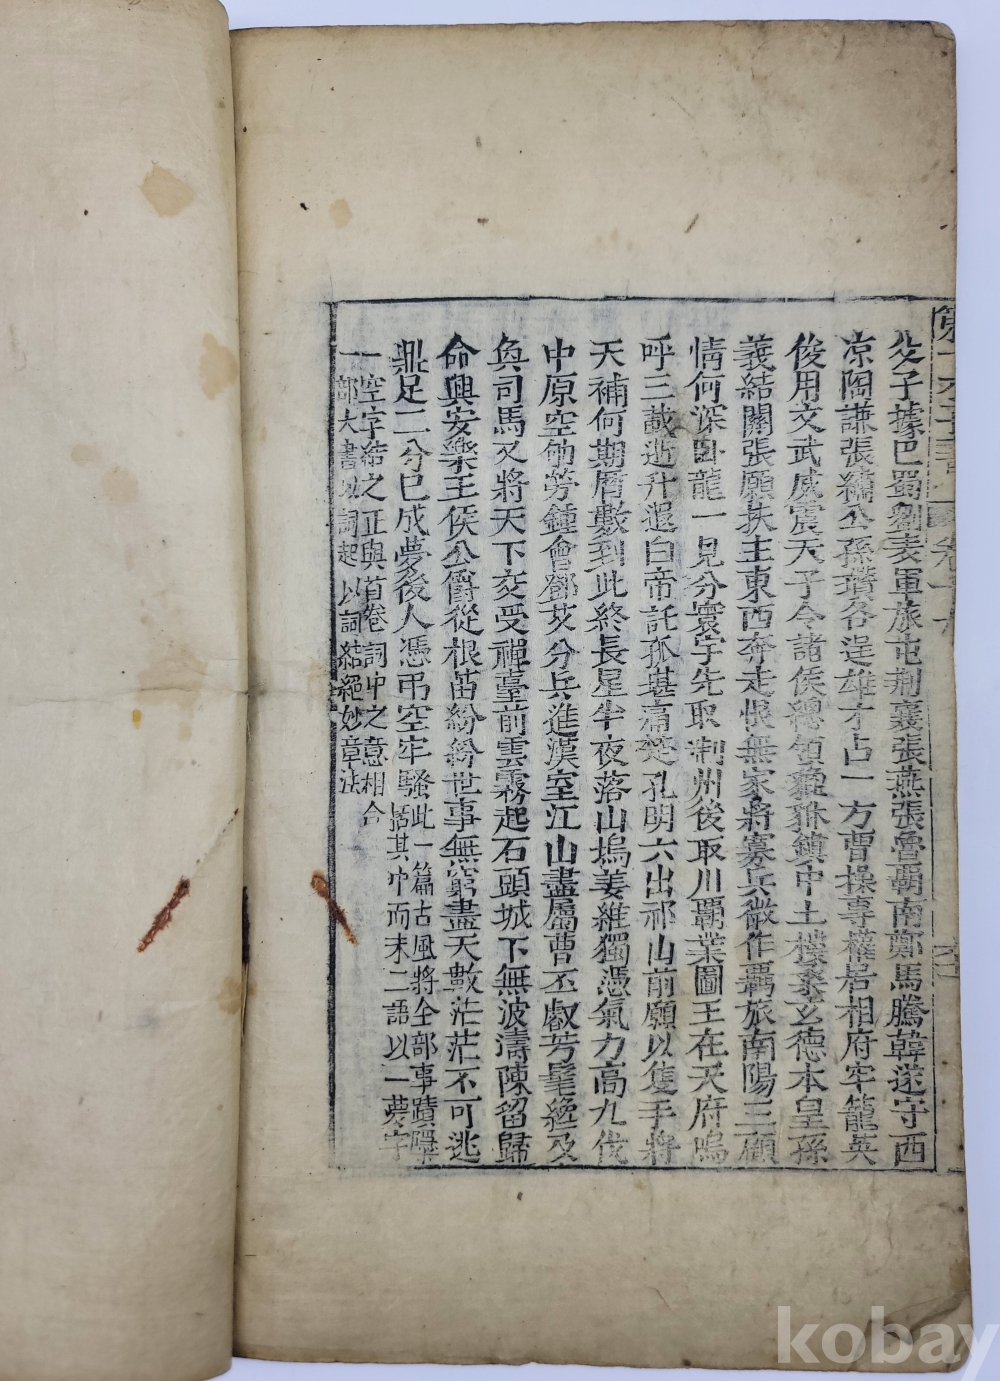 第一才子書
父子據巴蜀劉表軍旅屯荆襄張燕張魯霸南鄭馬騰韓遂守西
凉陶謙張繡公孫瓚各逞雄才占一方曹操專權居相府牢籠英
俊用文武威震天子令諸侯總領貔貅鎮中土樓桑玄德本皇孫
義結關張願扶主東西奔走恨無家將寡兵微作羇旅南陽三顧
情何深臥龍一見分寰宇先取荆州後取川霸業圖王在天府嗚
呼三載逝升遐白帝託孤堪痛楚孔明六出祁山前願以隻手將
天補何期曆數到此終長星半夜落山塢姜維獨憑氣力高九伐
中原空劬勞鍾會鄧艾分兵進漢室江山盡屬曹丕叡芳髦纔及
奐司馬又將天下交受禪臺前雲霧起石頭城下無波濤陳留歸
命與安樂王侯公爵從根苗紛紛世事無窮盡天數茫茫不可逃
鼎足三分已成夢後人憑吊空牢騷此一篇古風將全部事蹟櫽
括其中而末二語以一夢字
一空字結之正與首卷詞中之意相合
一部大書以詞起以詞結絕妙章法
kobay